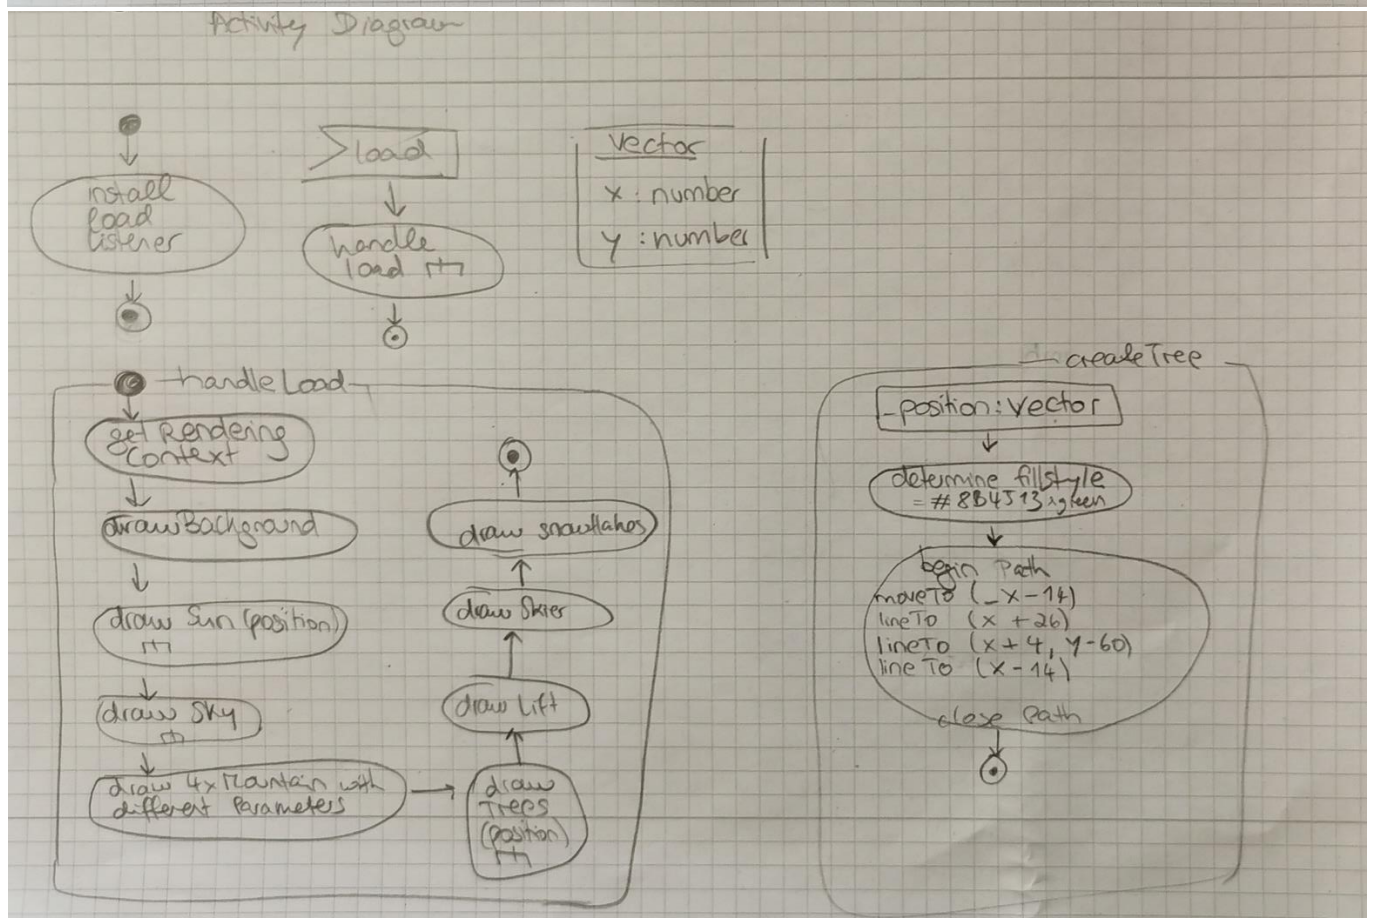 Activity Diagram
install
load
listener
load
handle
load
Vector
x : number
y : number
handleLoad
get Rendering
Context
draw Background
draw Sun (position)
draw Sky
draw 4x Mountain with
different Parameters
draw
Trees
(position)
draw Lift
draw Skier
draw snowflakes
createTree
_position: Vector
determine fillstyle
= #8B4513 green
begin Path
moveTo (_x-14)
lineTo (x +26)
lineTo (x+4, y-60)
lineTo (x-14)
close Path